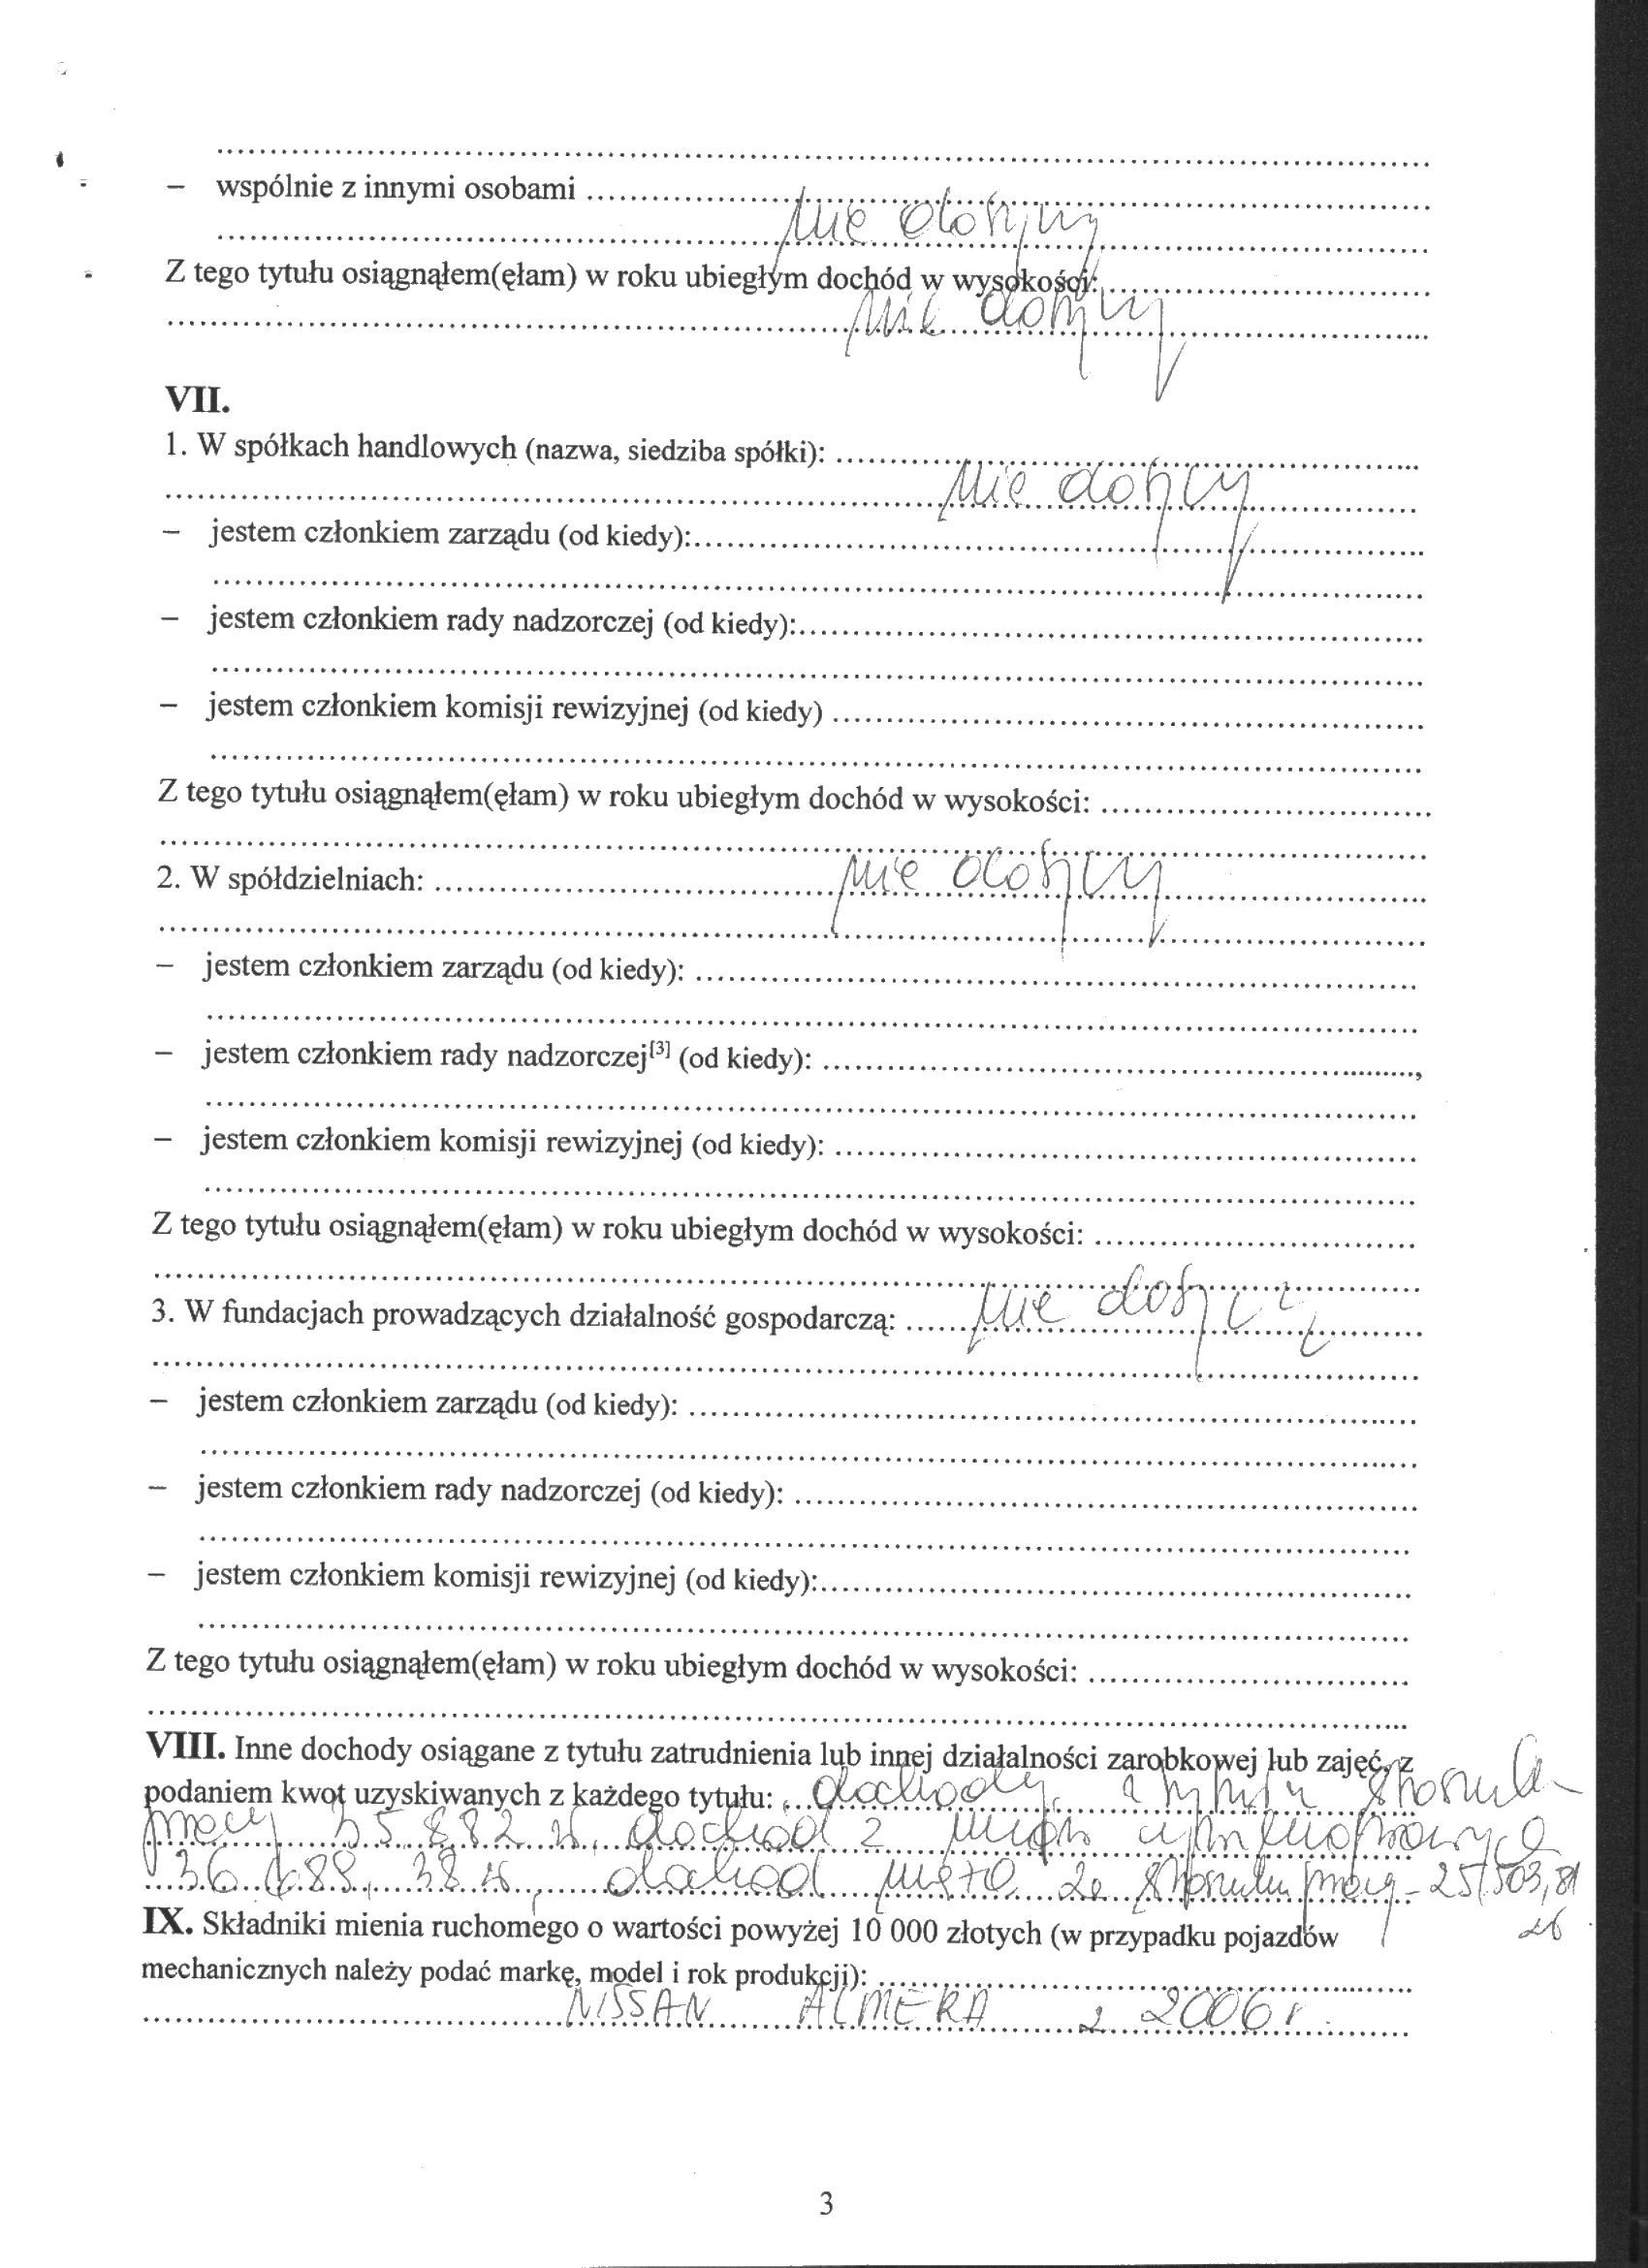 – wspólnie z innymi osobami ........ nie dotyczy
Z tego tytułu osiągnąłem(ęłam) w roku ubiegłym dochód w wysokości: ........
nie dotyczy
VII.
1. W spółkach handlowych (nazwa, siedziba spółki): ........
nie dotyczy
– jestem członkiem zarządu (od kiedy): ........
– jestem członkiem rady nadzorczej (od kiedy): ........
– jestem członkiem komisji rewizyjnej (od kiedy) ........
Z tego tytułu osiągnąłem(ęłam) w roku ubiegłym dochód w wysokości: ........
2. W spółdzielniach: ........ nie dotyczy
– jestem członkiem zarządu (od kiedy): ........
– jestem członkiem rady nadzorczej[3] (od kiedy): ........,
– jestem członkiem komisji rewizyjnej (od kiedy): ........
Z tego tytułu osiągnąłem(ęłam) w roku ubiegłym dochód w wysokości: ........
3. W fundacjach prowadzących działalność gospodarczą: ........ nie dotyczy
– jestem członkiem zarządu (od kiedy): ........
– jestem członkiem rady nadzorczej (od kiedy): ........
– jestem członkiem komisji rewizyjnej (od kiedy): ........
Z tego tytułu osiągnąłem(ęłam) w roku ubiegłym dochód w wysokości: ........
VIII. Inne dochody osiągane z tytułu zatrudnienia lub innej działalności zarobkowej lub zajęć, z
podaniem kwot uzyskiwanych z każdego tytułu: dochody z tytułu stosunku
pracy 35 882 zł, dochód z umów cywilnoprawnych
zł, dochód męża ze stosunku pracy - 25.503,81
zł
IX. Składniki mienia ruchomego o wartości powyżej 10 000 złotych (w przypadku pojazdów
mechanicznych należy podać markę, model i rok produkcji): ........
NISSAN ALMERA z 2006 r.
3